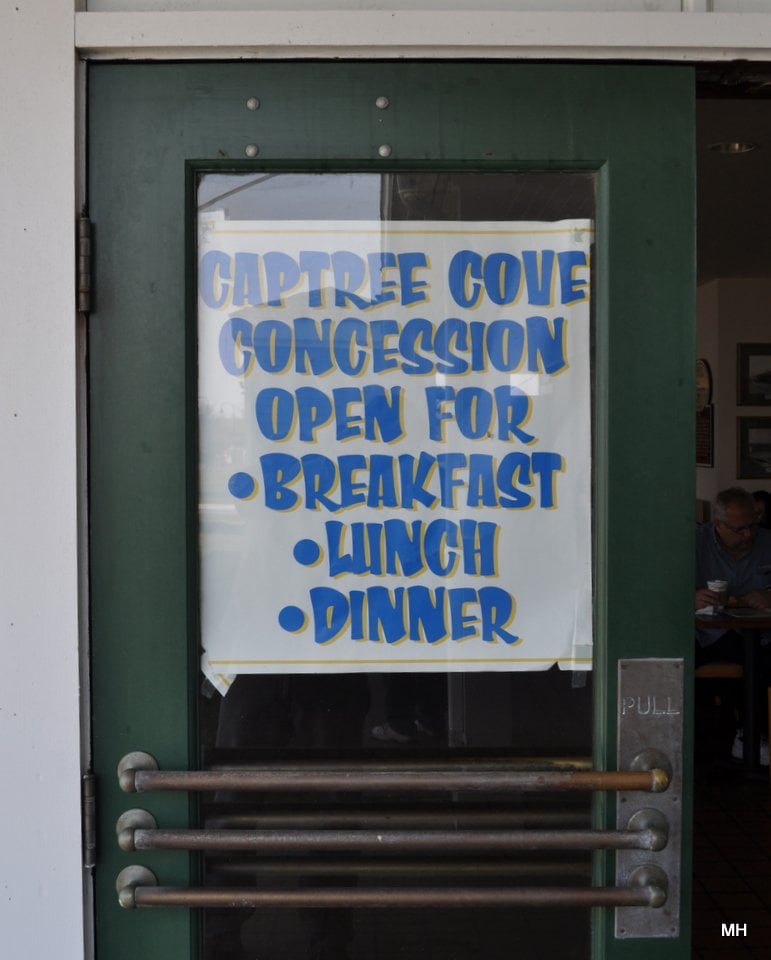 CAPTREE COVE
CONCESSION
OPEN FOR
•BREAKFAST
•LUNCH
•DINNER
PULL
MH